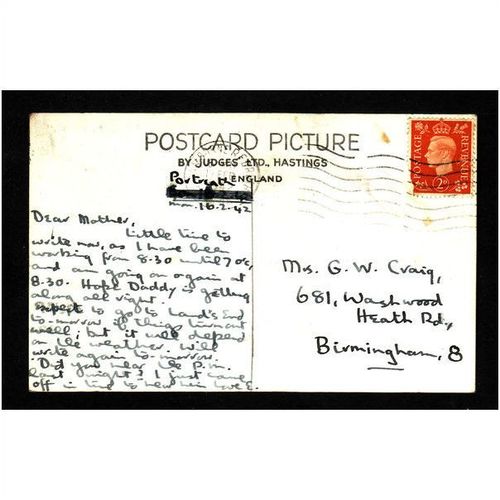 POSTCARD PICTURE
BY JUDGES LTD., HASTINGS
ENGLAND
Portreath
mon. 16.2.42
Dear Mother,
Little time to
write now, as I have been
working from 8.30 until 7 o/c,
and am going on again at
8.30. Hope Daddy is getting
along all right.
Expect to go to Land's End
to-morrow if things turn out
well; but it will depend
on the weather. Will
write again to-morrow.
Did you hear the P.M.
last night? I just came
off in time to hear him. Love E.
POSTAGE
REVENUE
2D
Mrs. G. W. Craig,
681, Washwood
Heath Rd.,
Birmingham, 8